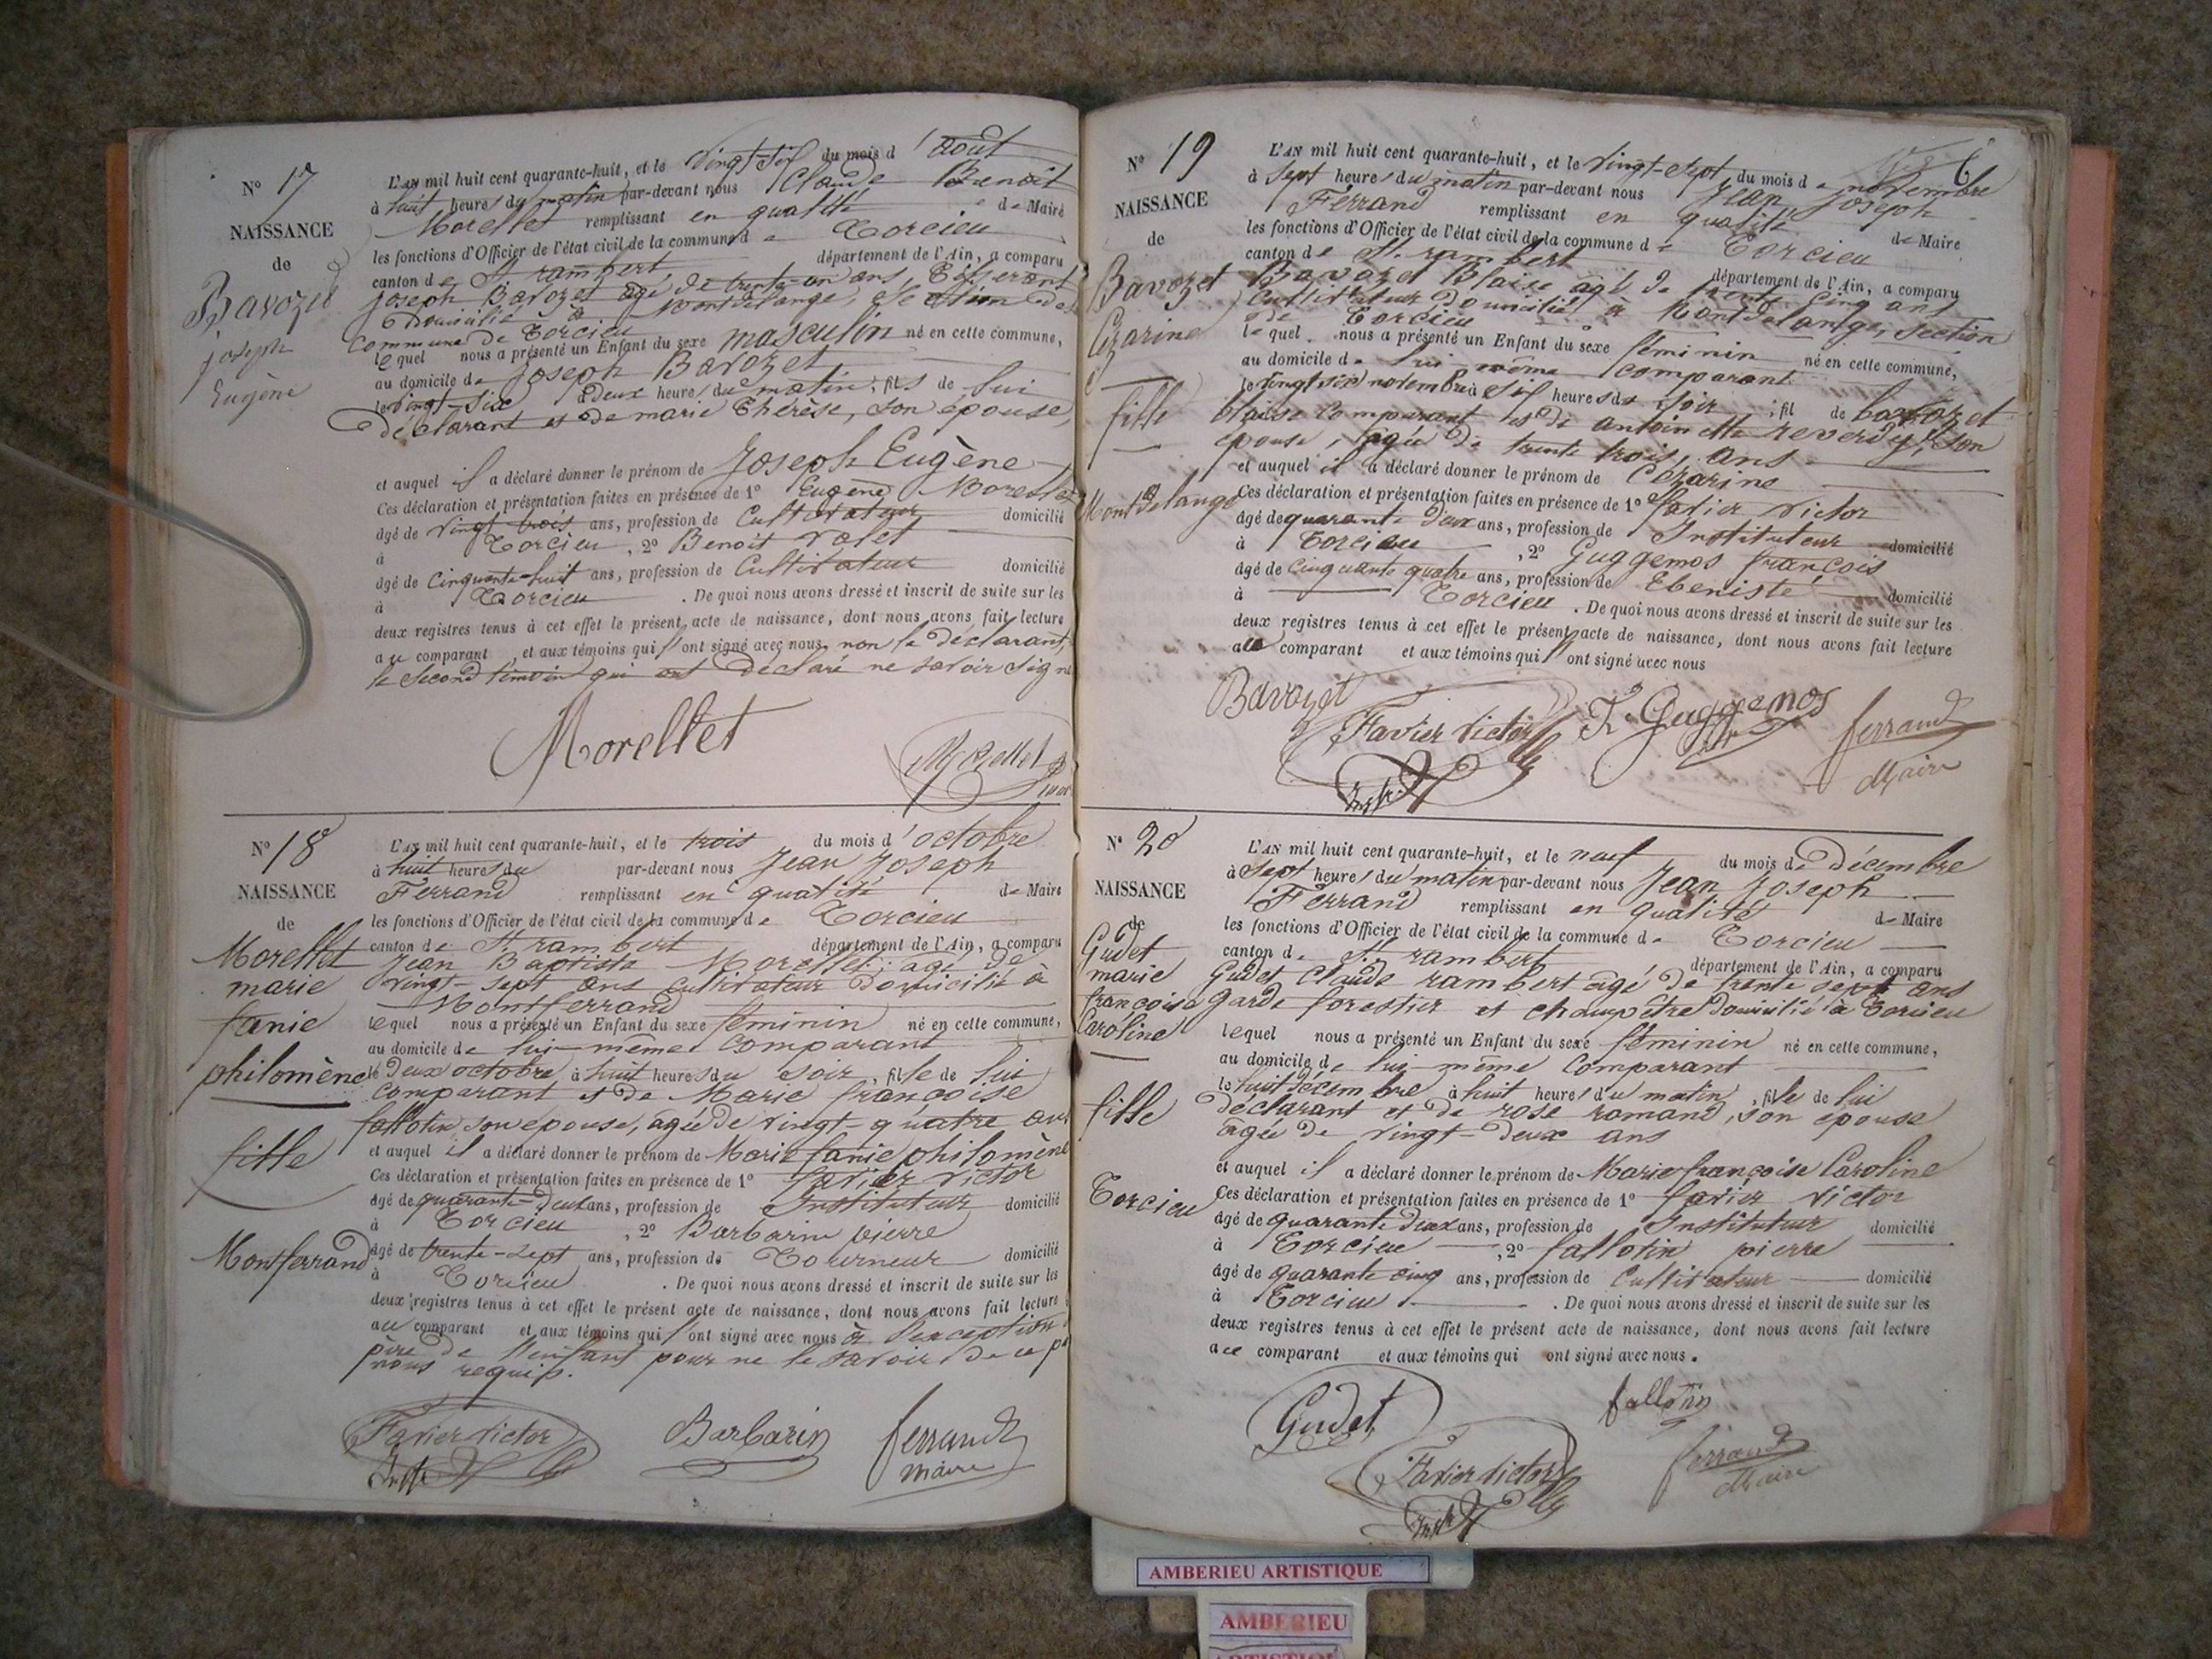 N° 17
NAISSANCE
de
Bavozet
joseph
Eugène
L'AN mil huit cent quarante-huit, et le Vingt-six du mois d'août
à huit heures du matin par-devant nous Claude Benoît
Morellet remplissant en qualité de Maire
les fonctions d'Officier de l'état civil de la commune de Torcieu
canton de St rambert département de l'Ain, a comparu
joseph Bavozet agé de trente-un ans, Tisserant
Domicilié à Montdelange, Section de
Commune de Torcieu
lequel nous a présenté un Enfant du sexe masculin né en cette commune,
au domicile de Joseph Bavozet
le vingt-six à Deux heures du matin, fils de lui
déclarant et de marie Thérèse, son épouse,
et auquel il a déclaré donner le prénom de Joseph Eugène
Ces déclaration et présentation faites en présence de 1° Eugène Morellet
âgé de vingt trois ans, profession de Cultivateur domicilié
à Torcieu, 2° Benoît
âgé de Cinquante-huit ans, profession de Cultivateur domicilié
à Torcieu. De quoi nous avons dressé et inscrit de suite sur les
deux registres tenus à cet effet le présent acte de naissance, dont nous avons fait lecture
au comparant et aux témoins qui ont signé avec nous, non le déclarant,
le Second témoin qui ont Déclaré ne savoir signe
Morellet
Morellet
N° 18
NAISSANCE
de
Morellet
marie
fanie
philomène
fille
Montferrand
L'AN mil huit cent quarante-huit, et le trois du mois d'octobre
à huit heures du par-devant nous Jean Joseph
Ferrand remplissant en qualité de Maire
les fonctions d'Officier de l'état civil de la commune de Torcieu
canton de St rambert département de l'Ain, a comparu
Jean Baptiste Morellet, agé de
vingt-sept ans Cultivateur Domicilié à
Montferrand
lequel nous a présenté un Enfant du sexe féminin né en cette commune,
au domicile de lui-même Comparant
le Deux octobre à huit heures du soir, fille de lui
Comparant et de Marie françoise
fallotin son epouse, agée de vingt-quatre ans
et auquel il a déclaré donner le prénom de Marie fanie philomène
Ces déclaration et présentation faites en présence de 1° favier Victor
âgé de quarante-deux ans, profession de Instituteur domicilié
à Torcieu, 2° Barbarin pierre
âgé de trente-sept ans, profession de Tourneur domicilié
à Torcieu. De quoi nous avons dressé et inscrit de suite sur les
deux registres tenus à cet effet le présent acte de naissance, dont nous avons fait lecture
au comparant et aux témoins qui ont signé avec nous à l'exception
père de l'enfant pour ne le savoir de ce p
nous requis.
Favier Victor
Barbarin
ferrand
maire
N° 19
NAISSANCE
de
Bavozet
Cezarine
fille
Montdelange
L'AN mil huit cent quarante-huit, et le vingt-sept du mois de novembre
à Sept heures du matin par-devant nous Jean Joseph
Ferrand remplissant en qualité de Maire
les fonctions d'Officier de l'état civil de la commune de Torcieu
canton de St. rambert département de l'Ain, a comparu
Bavozet Blaise agé de trente cinq ans
Cultivateur Domicilié à Montdelange, section
de Torcieu
lequel nous a présenté un Enfant du sexe féminin né en cette commune,
au domicile de lui même comparant
le vingt six novembre à six heures du soir, fil de bavozet
blaise Comparant et de antoinette reverdy, son
épouse, agée de trente trois, ans
et auquel il a déclaré donner le prénom de Cézarine
Ces déclaration et présentation faites en présence de 1° favier victor
âgé de quarante deux ans, profession de Instituteur domicilié
à Torcieu, 2° Guggemos françois
âgé de Cinquante quatre ans, profession de Ebeniste domicilié
à Torcieu. De quoi nous avons dressé et inscrit de suite sur les
deux registres tenus à cet effet le présent acte de naissance, dont nous avons fait lecture
au comparant et aux témoins qui ont signé avec nous
Bavozet
Favier Victor
F. Guggemos
ferrand
Maire
N° 20
NAISSANCE
de
Gudet
marie
françoise
Caroline
fille
Torcieu
L'AN mil huit cent quarante-huit, et le neuf du mois de Décembre
à Sept heures du matin par-devant nous Jean Joseph
Ferrand remplissant en qualité de Maire
les fonctions d'Officier de l'état civil de la commune de Torcieu
canton de St. rambert département de l'Ain, a comparu
Gudet Claude rambert agé de trente sept ans
garde forestier et champêtre Domicilié à Torcieu
lequel nous a présenté un Enfant du sexe féminin né en cette commune,
au domicile de lui-même Comparant
le huit Décembre à huit heures du matin, fille de lui
déclarant et de rose romand, son épouse
agée de vingt-deux ans
et auquel il a déclaré donner le prénom de Marie françoise Caroline
Ces déclaration et présentation faites en présence de 1° favier Victor
âgé de quarante deux ans, profession de Instituteur domicilié
à Torcieu, 2° fallotin pierre
âgé de quarante cinq ans, profession de Cultivateur domicilié
à Torcieu. De quoi nous avons dressé et inscrit de suite sur les
deux registres tenus à cet effet le présent acte de naissance, dont nous avons fait lecture
au comparant et aux témoins qui ont signé avec nous.
Gudet
fallotin
Favier Victor
ferrand
Maire
AMBERIEU ARTISTIQUE
AMBERIEU
ARTISTIQUE